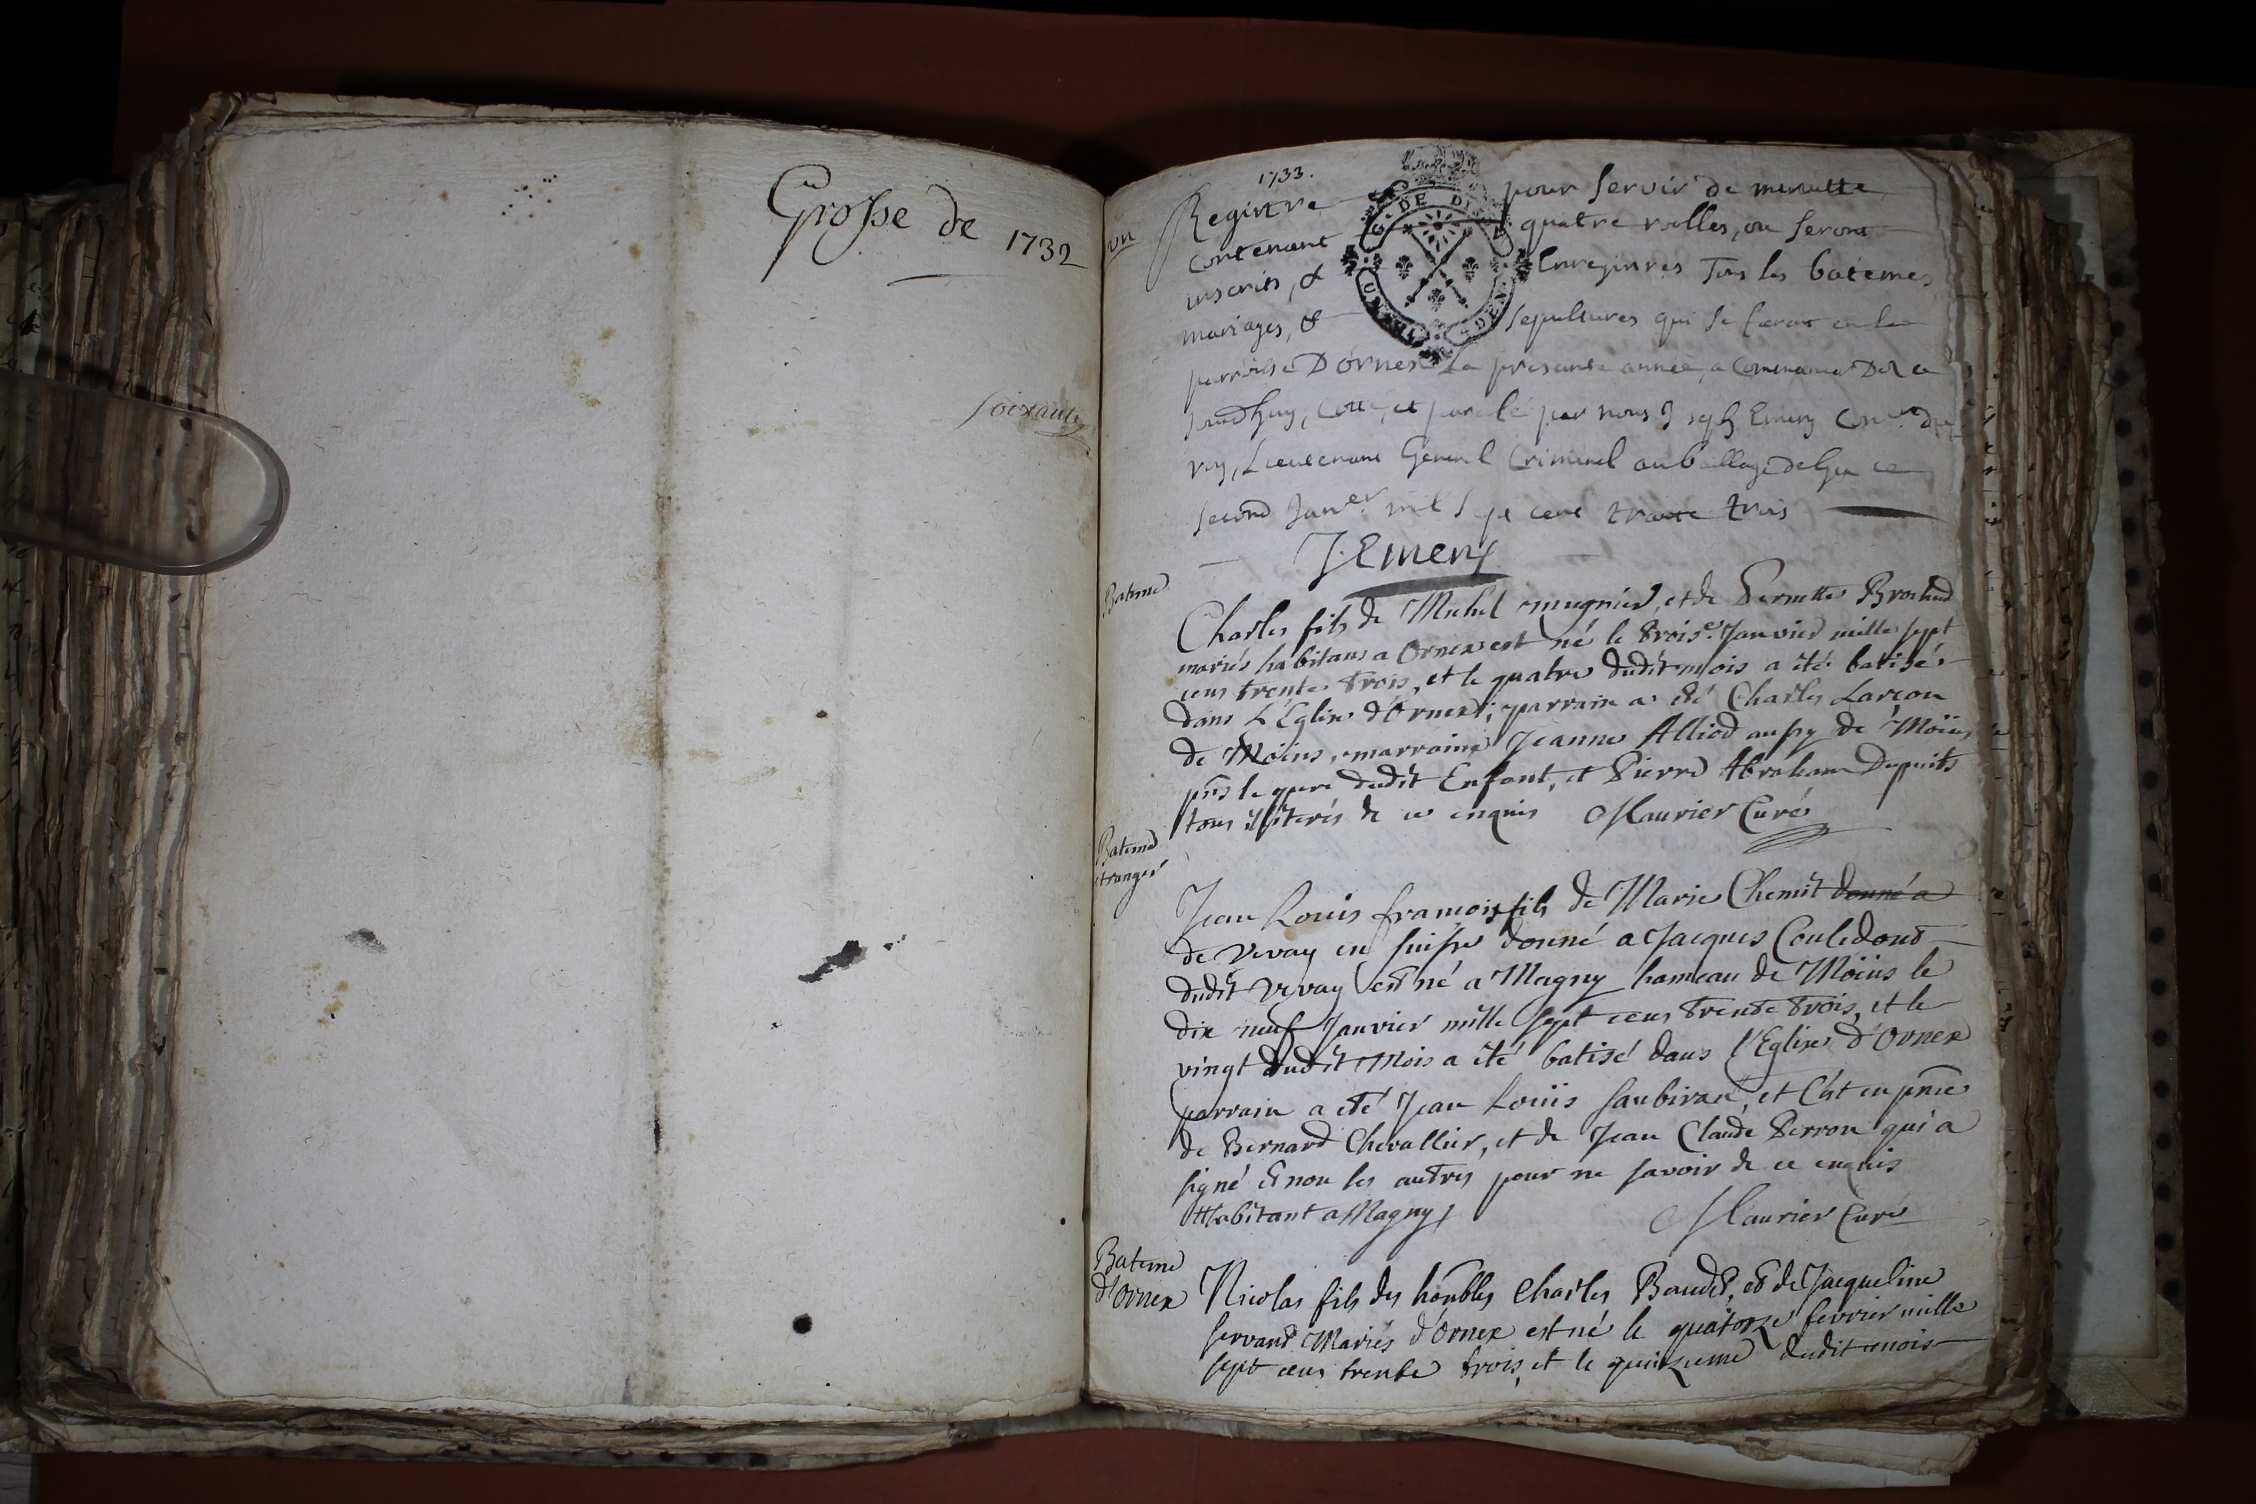 Grosse de 1732
soixante
un
1733.
Registre pour servir de minutte
contenant quatre rolles, ou seront
inscrits, & Enregistres Tous les batemes,
mariages, & sepultures qui se feront en la
parroisse D'ornex La presente annee, a commencer De ce
jourdhuy, cotté, et paraffé par nous Joseph Emery Con.er du
roy, Lieutenant General Criminel au baillage de Gex ce
second Janv.er mil sept cent trante trois
J. Emery
Bateme
Charles fils de Michel mugnier, et de Pernette Brochud
mariés habitans a Ornex est né le trois.e Janvier mille sept
cens trente trois, et le quatre dudit mois a été batisé
dans L'Eglise d'Ornex; parrain a été Charles Larçon
de Moïns, marraine Jeanne Alliod aussy de Moïns
pns le pere dudit Enfant, et Pierre Abraham Dupuits
tous illiterés de ce enquis Maurier Curé
Bateme
étranger
Jean Louis françois fils de Marie Chemit donné a
de Vevay en suisse donné a Jacques Couledout
dudit Vevay est né a Magny hameau de Moïns le
dix neuf Janvier mille sept cens trente trois, et le
vingt dudit mois a été batisé dans l'Eglise d'Ornex
parrain a été Jean Louïs Saubiran, et C'ést en pnce
de Bernard Chevallier, et de Jean Claude Perron qui a
signé et non les autres pour ne savoir de ce enquis
Habitant a Magny
Maurier Curé
Bateme
d'Ornex
Nicolas fils des honbles Charles Baudet, et de Jacqueline
servand Mariés d'Ornex est né le quatorze fevrier mille
sept cens trente trois, et le quinzieme dudit mois